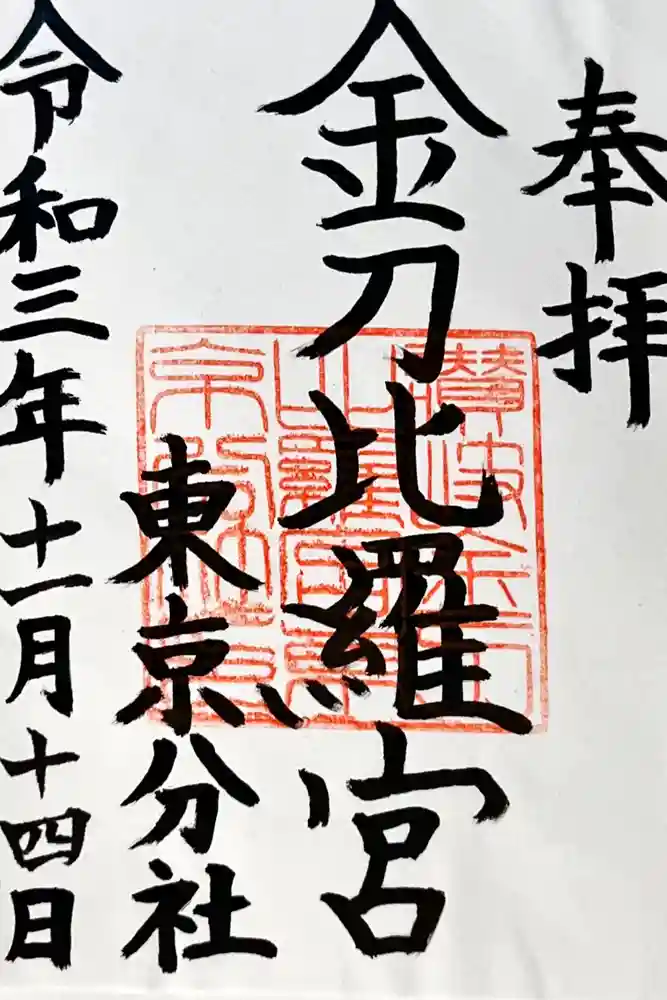 奉拝
金刀比羅宮
東京分社
令和三年十一月十四日